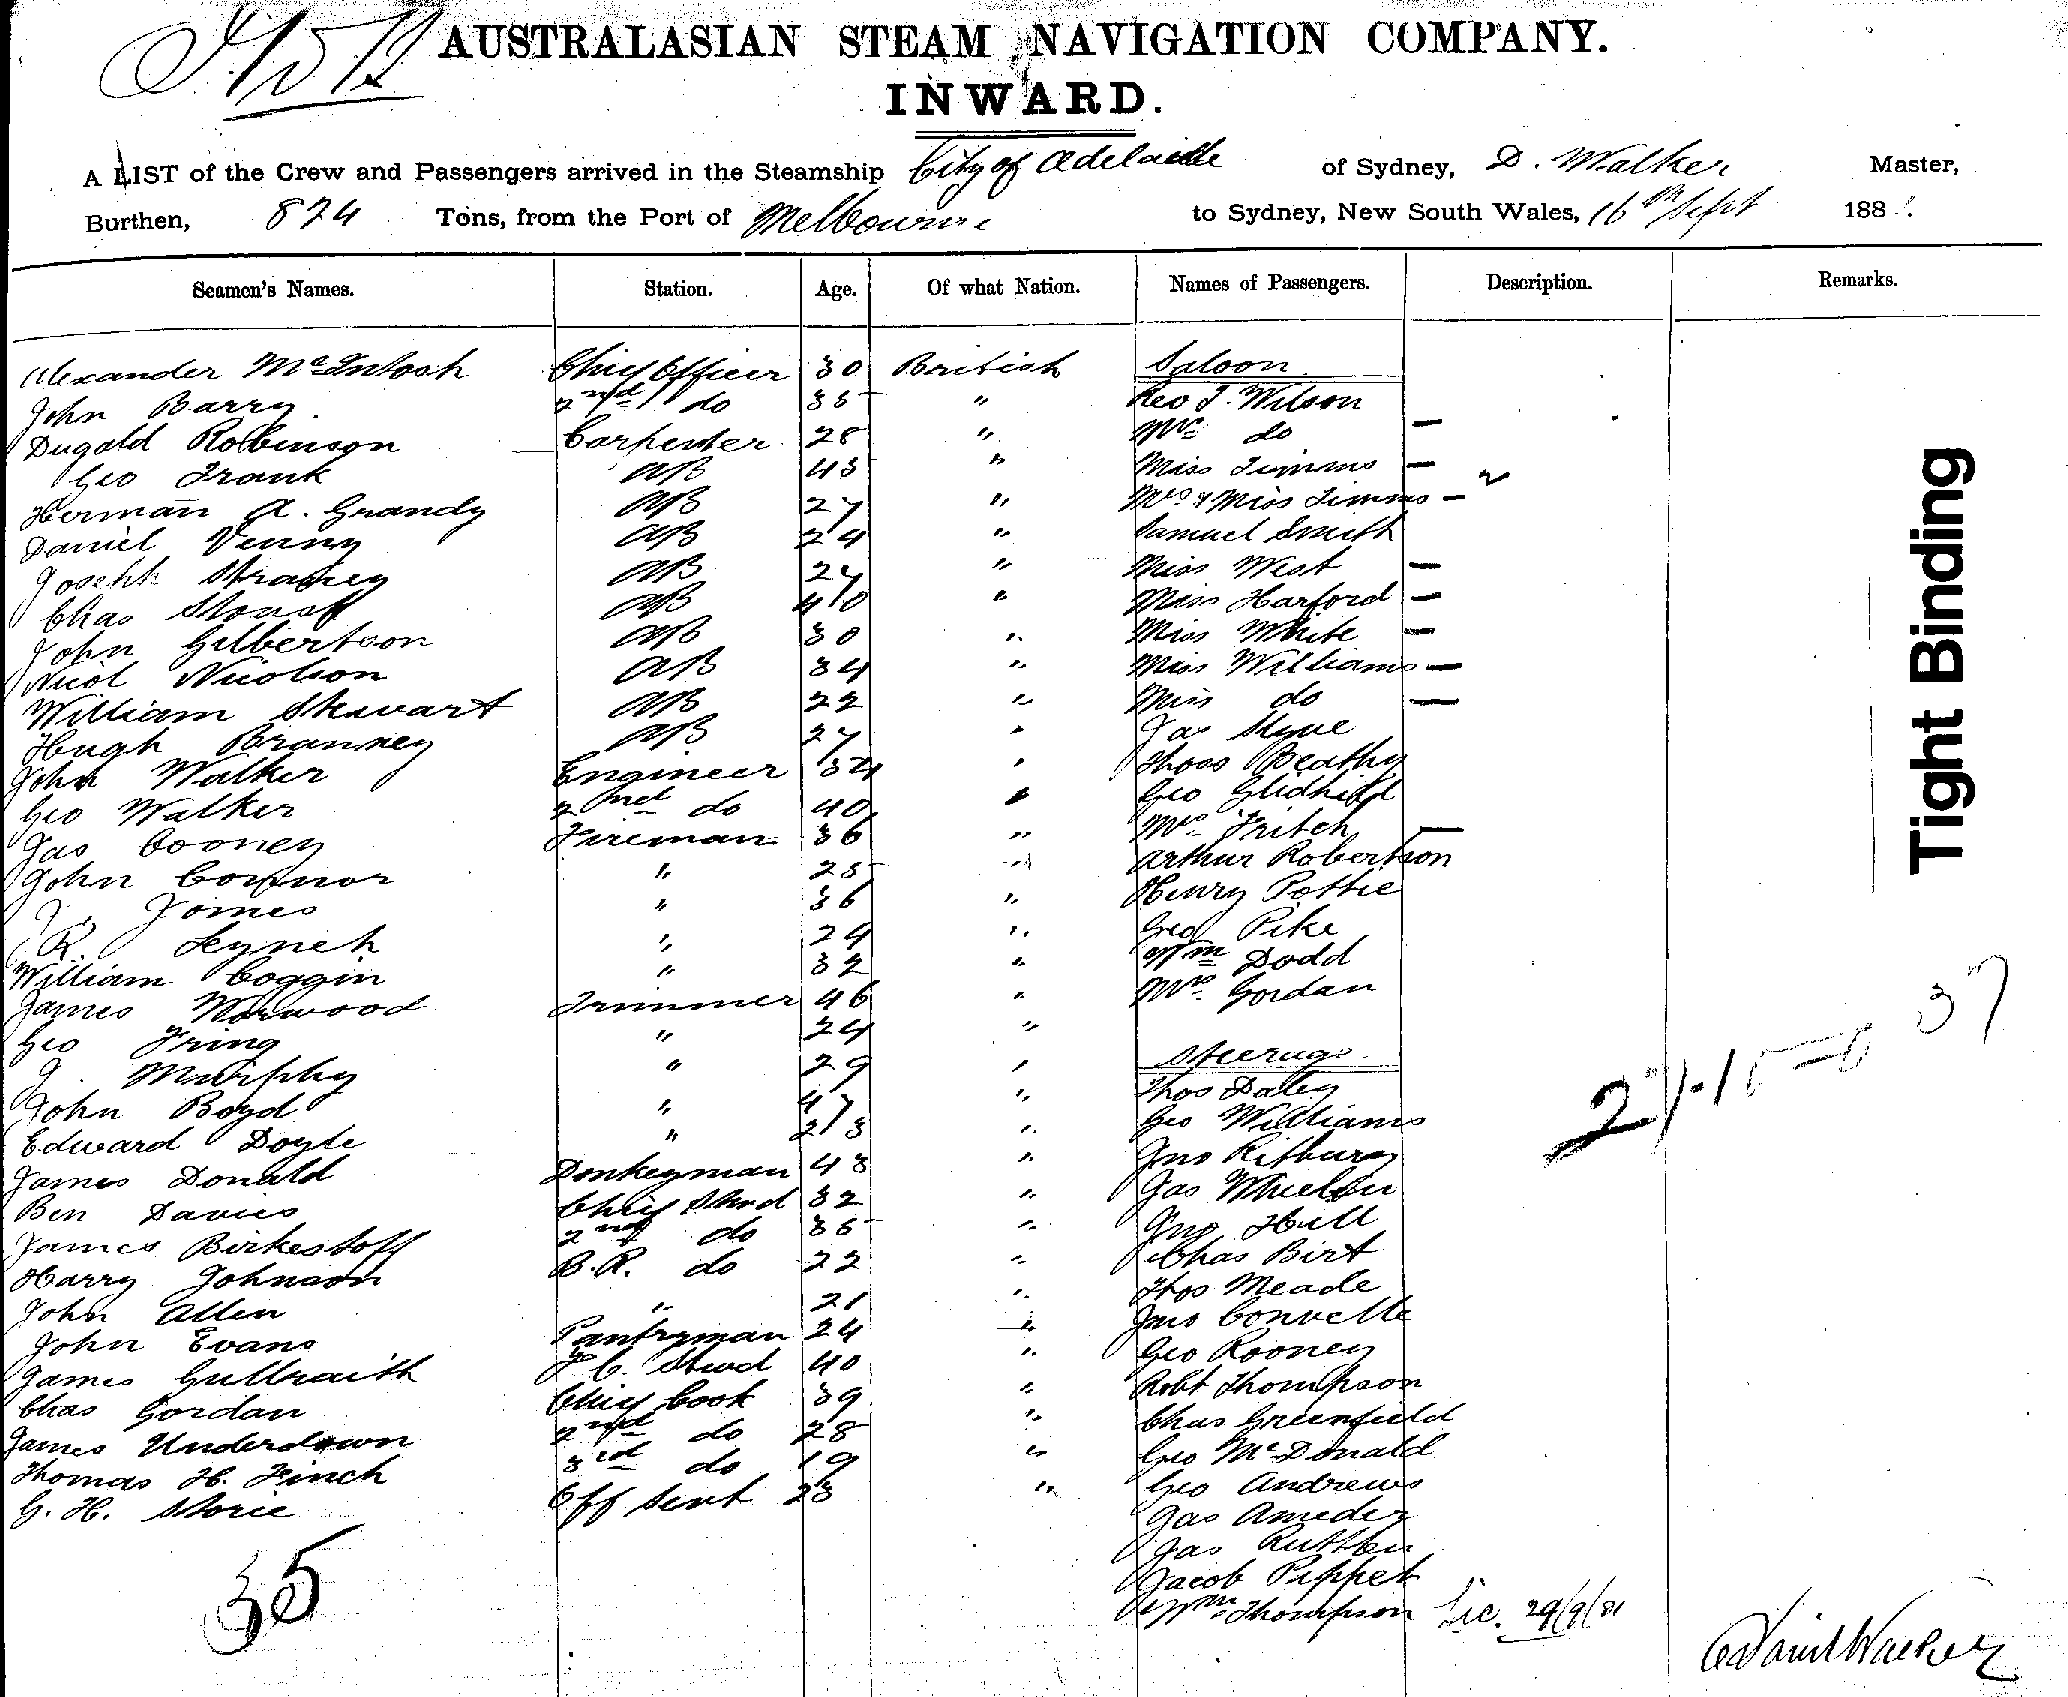 AUSTRALASIAN STEAM NAVIGATION COMPANY.
INWARD.
A LIST of the Crew and Passengers arrived in the Steamship City of Adelaide of Sydney, D. Walker Master,
Burthen, 824 Tons, from the Port of Melbourne to Sydney, New South Wales, 16th Sept 188
Seamen's Names. Station. Age. Of what Nation. Names of Passengers. Description. Remarks.
Alexander McIntosh Chief Officer 30 British Saloon
John Barry 2nd do 35 " Geo T. Wilson
Dugald Robinson Carpenter 28 " Mrs do —
Geo Frank AB 43 " Miss Timms —
Herman A. Grandy AB 27 " Mrs & Miss Timms —
Daniel Venny AB 24 " Samuel Smith
Joseph AB 27 " Miss West —
Chas AB 40 " Miss Harford —
John Gilbertson AB 30 " Miss White —
Nicol Nicolson AB 34 " Miss Williams —
William Stewart AB 22 " Miss do —
Hugh Branney AB 27 " Jas Styne
John Walker Engineer 34 " Thos Beathy
Geo Walker 2nd do 40 " Geo
Jas Cooney Fireman 36 " Mrs Fritch —
John Connor " 25 " Arthur Robertson
J. Jomes " 36 " Henry Pottie
R. Lynch " 24 " Geo Pike
William Coggin " 32 " Wm Dodd
James Norwood Trimmer 46 " Mrs Gordan
Geo Tring " 24 "
J. Murphy " 29 " Steerage
John Boyd " 47 " Thos Daley
Edward Doyle " 23 " Geo Williams
James Donald Donkeyman 43 " Jno
Ben Davies Chief Stwd 32 " Jas
James Birkestoff 2nd do 35 " Jno Hill
Harry Johnson B.R. do 22 " Chas Birt
John Allen " 21 " Thos Meade
John Evans Pantryman 24 " Jno
James Gullraith F.C. Stwd 40 " Geo Rooney
Chas Gordan Chief Cook 39 " Robt Thompson
James Underdown 2nd do 28 " Chas Greenfield
Thomas H. Finch 3rd do 19 " Geo McDonald
G. H. Storie Off Servt 23 " Geo Andrews
Jas Ameder
Jas
Jacob Peppet
Wm Thompson
35
37
29/9/81
David Walker
Tight Binding